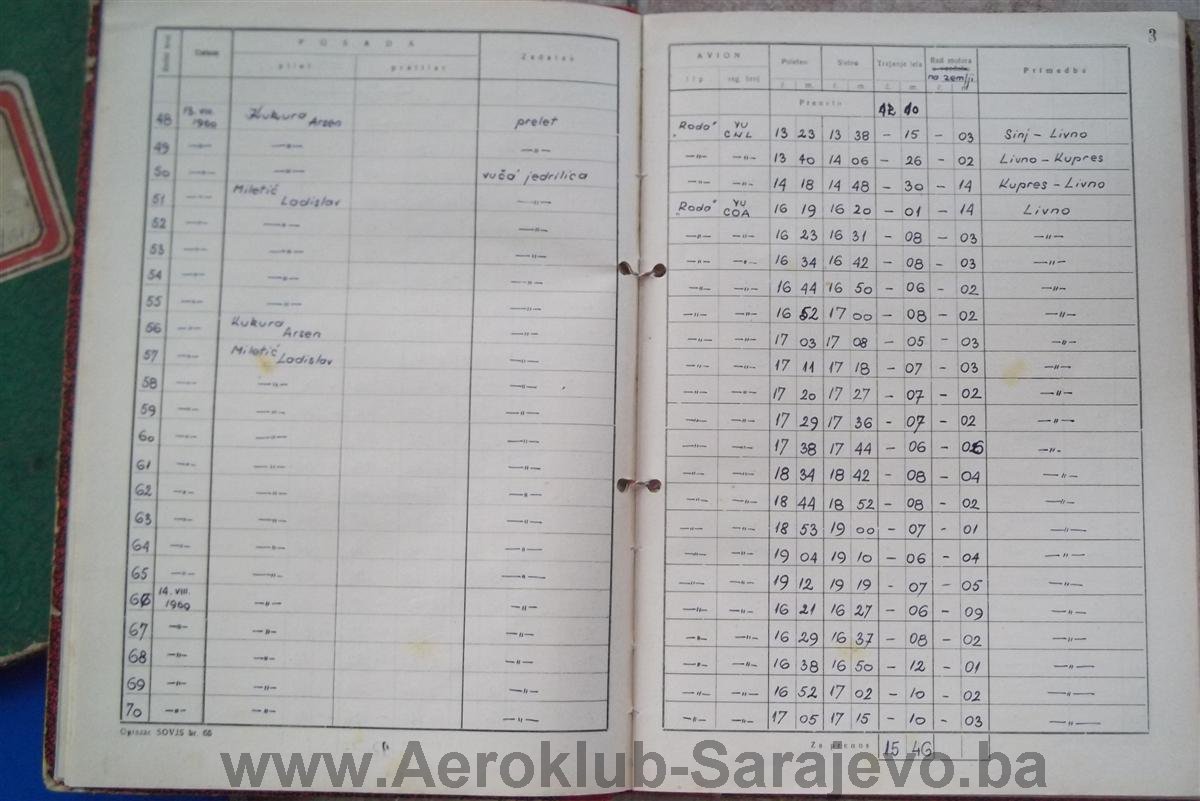 3
Datum POSADA Zadatak AVION Poleteo Sleteo Trajanje leta Rad motora na zemlji Primedba
pilot putnik tip reg. broj č. m. č. m. č. m. č. m.
Preneto 12 10
48 13. VIII. 1960 Kukura Arsen prelet "Roda" YU CNL 13 23 13 38 – 15 – 03 Sinj – Livno
49 —"— —"— —"— —"— —"— 13 40 14 06 – 26 – 02 Livno – Kupres
50 —"— —"— vuča jedrilica —"— —"— 14 18 14 48 – 30 – 14 Kupres – Livno
51 —"— Miletić Ladislav —"— "Roda" YU COA 16 19 16 20 – 01 – 14 Livno
52 —"— —"— —"— —"— —"— 16 23 16 31 – 08 – 03 —"—
53 —"— —"— —"— —"— —"— 16 34 16 42 – 08 – 03 —"—
54 —"— —"— —"— —"— —"— 16 44 16 50 – 06 – 02 —"—
55 —"— —"— —"— —"— —"— 16 52 17 00 – 08 – 02 —"—
56 —"— Kukura Arsen —"— —"— —"— 17 03 17 08 – 05 – 03 —"—
57 —"— Miletić Ladislav —"— —"— —"— 17 11 17 18 – 07 – 03 —"—
58 —"— —"— —"— —"— —"— 17 20 17 27 – 07 – 02 —"—
59 —"— —"— —"— —"— —"— 17 29 17 36 – 07 – 02 —"—
60 —"— —"— —"— —"— —"— 17 38 17 44 – 06 – —"—
61 —"— —"— —"— —"— —"— 18 34 18 42 – 08 – 04 —"—
62 —"— —"— —"— —"— —"— 18 44 18 52 – 08 – 02 —"—
63 —"— —"— —"— —"— —"— 18 53 19 00 – 07 – 01 —"—
64 —"— —"— —"— —"— —"— 19 04 19 10 – 06 – 04 —"—
65 —"— —"— —"— —"— —"— 19 12 19 19 – 07 – 05 —"—
66 14. VIII. 1960 —"— —"— —"— —"— 16 21 16 27 – 06 – 09 —"—
67 —"— —"— —"— —"— —"— 16 29 16 37 – 08 – 02 —"—
68 —"— —"— —"— —"— —"— 16 38 16 50 – 12 – 01 —"—
69 —"— —"— —"— —"— —"— 16 52 17 02 – 10 – 02 —"—
70 —"— —"— —"— —"— —"— 17 05 17 15 – 10 – 03 —"—
Obrazac SOVJS br. 66 Za prenos 15 46
www.Aeroklub-Sarajevo.ba